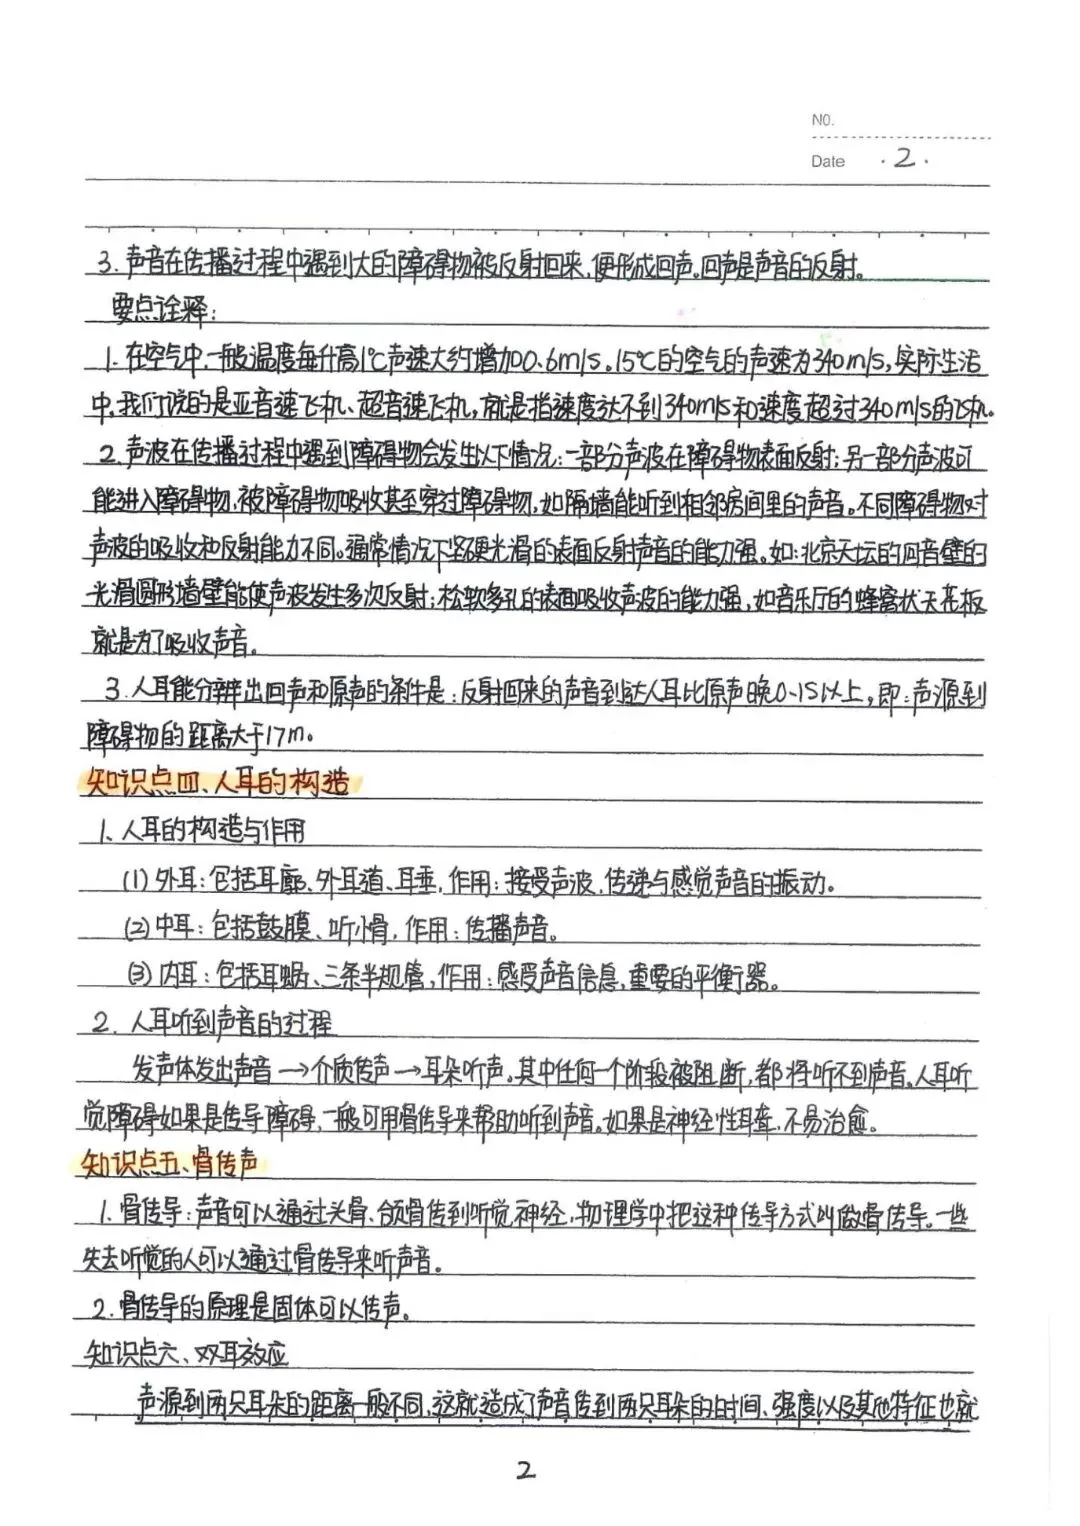 NO.
Date ·2·
3. 声音在传播过程中遇到大的障碍物被反射回来,便形成回声。回声是声音的反射。
要点诠释:
1. 在空气中,一般温度每升高1℃声速大约增加0.6m/s。15℃的空气的声速为340m/s,实际生活
中,我们说的是亚音速飞机、超音速飞机,就是指速度达不到340m/s和速度超过340m/s的飞机。
2. 声波在传播过程中遇到障碍物会发生以下情况:一部分声波在障碍物表面反射;另一部分声波可
能进入障碍物,被障碍物吸收甚至穿过障碍物,如隔墙能听到相邻房间里的声音。不同障碍物对
声波的吸收和反射能力不同。通常情况下坚硬光滑的表面反射声音的能力强。如:北京天坛的回音壁的
光滑圆形墙壁能使声波发生多次反射;松软多孔的表面吸收声波的能力强,如音乐厅的蜂窝状天花板
就是为了吸收声音。
3. 人耳能分辨出回声和原声的条件是:反射回来的声音到达人耳比原声晚0.1S以上,即:声源到
障碍物的距离大于17m。
知识点四、人耳的构造
1、人耳的构造与作用
(1)外耳:包括耳廓、外耳道、耳垂,作用:接受声波,传递与感觉声音的振动。
(2)中耳:包括鼓膜、听小骨,作用:传播声音。
(3)内耳:包括耳蜗、三条半规管,作用:感受声音信息,重要的平衡器。
2. 人耳听到声音的过程
发声体发出声音→介质传声→耳朵听声。其中任何一个阶段被阻断,都将听不到声音。人耳听
觉障碍如果是传导障碍,一般可用骨传导来帮助听到声音。如果是神经性耳聋,不易治愈。
知识点五、骨传声
1. 骨传导:声音可以通过头骨、颌骨传到听觉神经,物理学中把这种传导方式叫做骨传导。一些
失去听觉的人可以通过骨传导来听声音。
2. 骨传导的原理是固体可以传声。
知识点六、双耳效应
声源到两只耳朵的距离一般不同,这就造成了声音传到两只耳朵的时间、强度以及其他特征也就
2